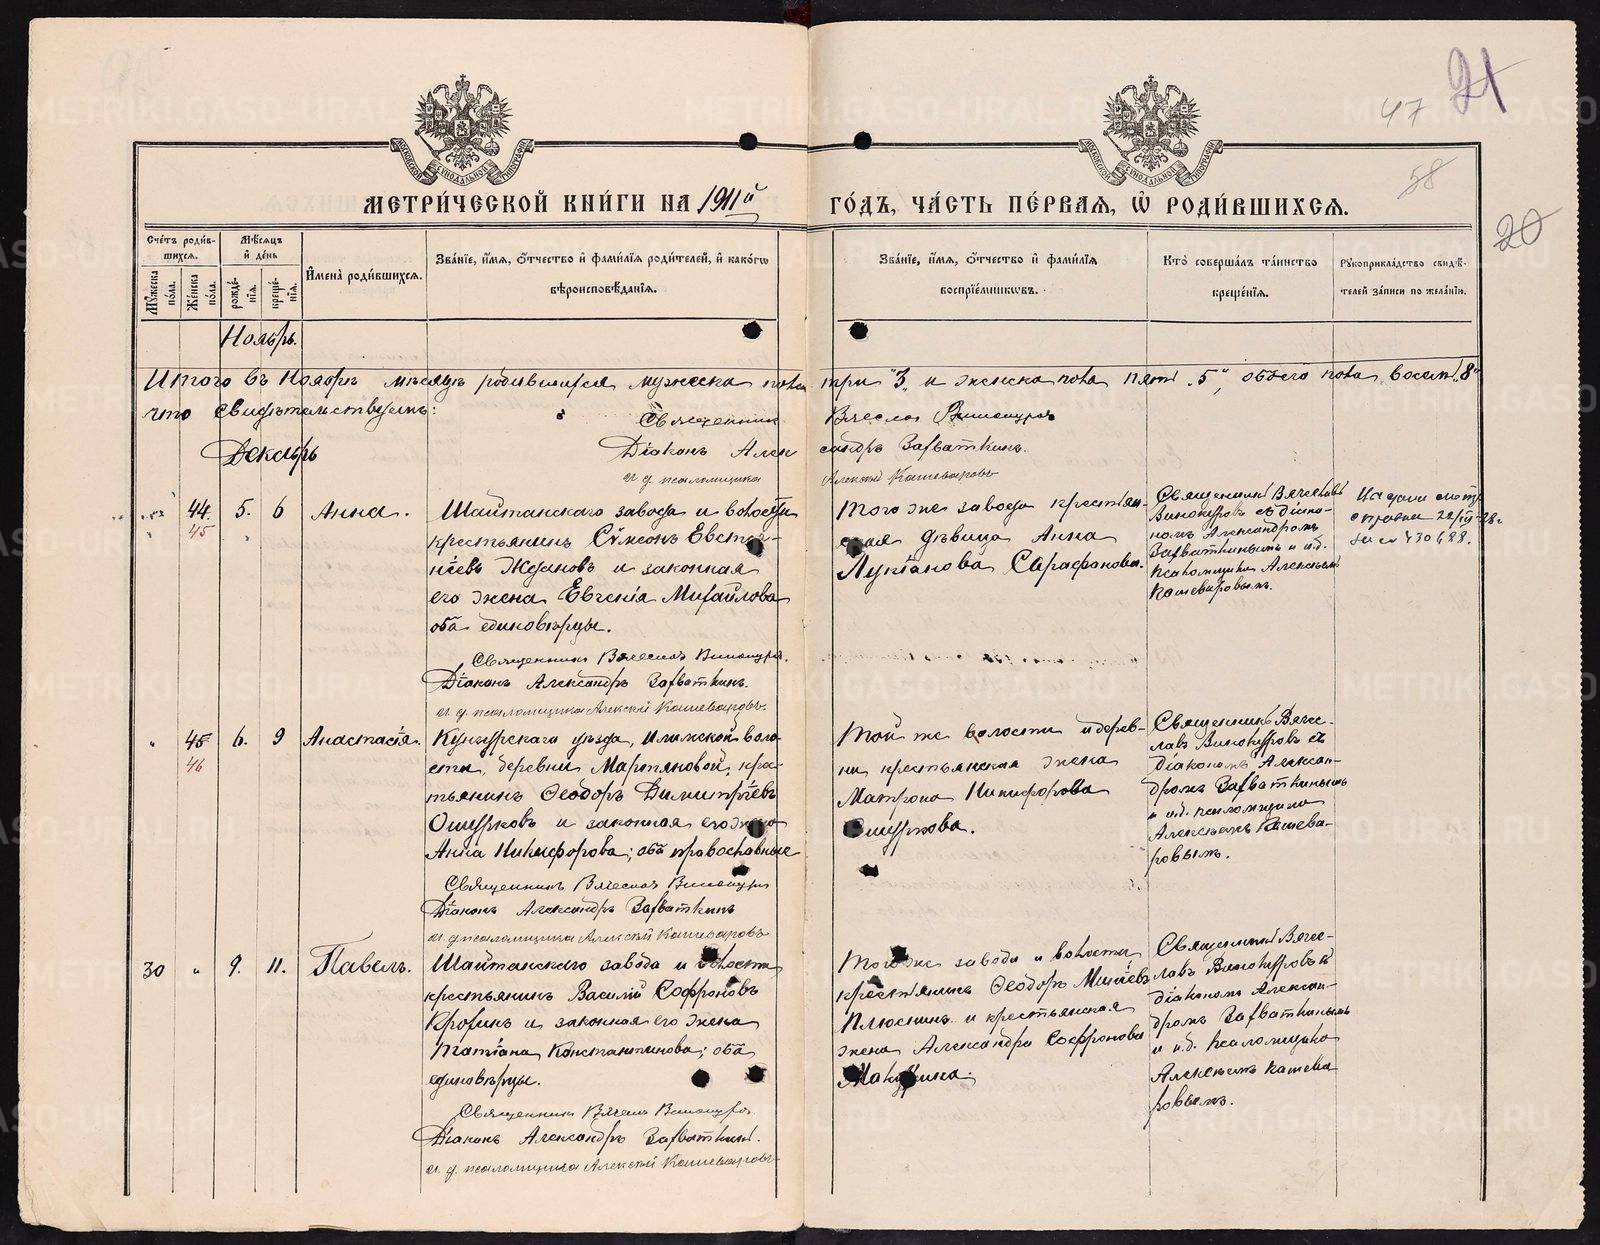 47
21
58
20
МЕТРИ́ЧЕСКОЙ КНИ́ГИ НА 1911й ГО́ДЪ, ЧА́СТЬ ПЕ́РВАЯ, Ѡ РОДИ́ВШИХСЯ.
Сче́тъ роди́в-
шихся.
Му́жеска по́ла.
Же́нска по́ла.
Мѣ́сяцъ и де́нь
рожде́-
нїя.
креще́-
нїя.
И҆мена̀ роди́вшихся.
Зва́нїе, и҆́мя, о҆́тчество и҆ фами́лїя роди́телей, и҆ како́гѡ
вѣроисповѣ́данїя.
Зва́нїе, и҆́мя, о҆́тчество и҆ фами́лїя
воспрїе́мникѡвъ.
Кто̀ соверша́лъ та́инство
креще́нїя.
Рꙋкоприкла́дство свидѣ́-
телей за́писи по жела́нїю.
Ноябрь.
Итого въ Ноябрѣ мѣсяцѣ родившихся мужеска пола три "3" и женска пола пять "5", обоего пола восемь "8"
что свидѣтельствуемъ:
Священникъ Вячеславъ Винокуровъ
Декабрь
Діаконъ Александръ Завваткинъ.
И д псаломщика Алексѣй Кашеваровъ
44.
45
5.
6
Анна.
Шайтанскаго завода и волости
крестьянинъ Сѵмеонъ Евста-
ѳіевъ Ждановъ и законная
его жена Евгенія Михайлова
оба единовѣрцы.
Того же завода крестьян-
ская дѣвица Анна
Лукіанова Сарафанова.
Священникъ Вячеславъ
Винокуровъ съ діако-
номъ Александромъ
Завваткинымъ и и.д.
псаломщика Алексѣемъ
Кашеваровымъ.
Священникъ Вячеславъ Винокуровъ.
Діаконъ Александръ Завваткинъ.
И д. псаломщика Алексѣй Кашеваровъ.
"
45
46
6.
9
Анастасія.
Кунгурскаго уѣзда, Илимской воло-
сти, деревни Мартяновой, крес-
тьянинъ Ѳеодоръ Димитріевъ
Ошурковъ и законная его жена
Анна Никифорова; оба православные
Той же волости и дерев-
ни крестьянская жена
Матрона Никифорова
Ошуркова.
Священникъ Вяче-
славъ Винокуровъ съ
діакономъ Алексан-
дромъ Завваткинымъ
и и.д. псаломщика
Алексѣемъ Кашева-
ровымъ.
Священникъ Вячеславъ Винокуровъ
Діаконъ Александръ Завваткинъ
И. д. псаломщика Алексѣй Кашеваровъ
30
"
9.
11.
Павелъ.
Шайтанскаго завода и волости
крестьянинъ Василій Софроновъ
и законная его жена
Татіана Константинова; оба
единовѣрцы.
Того же завода и волости
крестьянинъ Ѳеодоръ
Плюснинъ и крестьянская
жена Александра Софронова
Священникъ Вяче-
славъ Винокуровъ съ
діакономъ Алексан-
дромъ Завваткинымъ
и и.д. псаломщика
Алексѣемъ Кашева-
ровымъ.
Священникъ Вячеславъ Винокуровъ
Діаконъ Александръ Завваткинъ.
И. д. псаломщика Алексѣй Кашеваровъ
METRIKI.GASO-URAL.RU